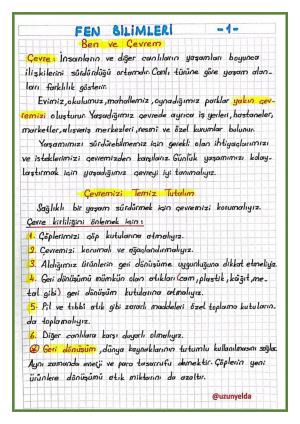 FEN BİLİMLERİ -1-
Ben ve Çevrem
Çevre: İnsanların ve diğer canlıların yaşamları boyunca
ilişkilerini sürdürdüğü ortamdır. Canlı türüne göre yaşam alan-
ları farklılık gösterir.
Evimiz, okulumuz, mahallemiz, oynadığımız parklar yakın çev-
remizi oluşturur. Yaşadığımız çevrede ayrıca iş yerleri, hastaneler,
marketler, alışveriş merkezleri, resmi ve özel kurumlar bulunur.
Yaşamımızı sürdürebilmemiz için gerekli olan ihtiyaçlarımızı
ve isteklerimizi çevremizden karşılarız. Günlük yaşamımızı kolay-
laştırmak için yaşadığımız çevreyi iyi tanımalıyız.
Çevremizi Temiz Tutalım
Sağlıklı bir yaşam sürdürmek için çevremizi korumalıyız.
Çevre kirliliğini önlemek için;
1. Çöplerimizi çöp kutularına atmalıyız.
2. Çevremizi korumalı ve ağaçlandırmalıyız.
3. Aldığımız ürünlerin geri dönüşüme uygunluğuna dikkat etmeliyiz.
4. Geri dönüşümü mümkün olan atıkları (cam, plastik, kâğıt, me-
tal gibi) geri dönüşüm kutularına atmalıyız.
5. Pil ve tıbbi atık gibi zararlı maddeleri özel toplama kutuların-
da toplamalıyız.
6. Diğer canlılara karşı duyarlı olmalıyız.
Geri dönüşüm, dünya kaynaklarının tutumlu kullanılmasını sağlar.
Aynı zamanda enerji ve para tasarrufu demektir. Çöplerin yeni
ürünlere dönüşümü atık miktarını da azaltır.
@uzunyelda